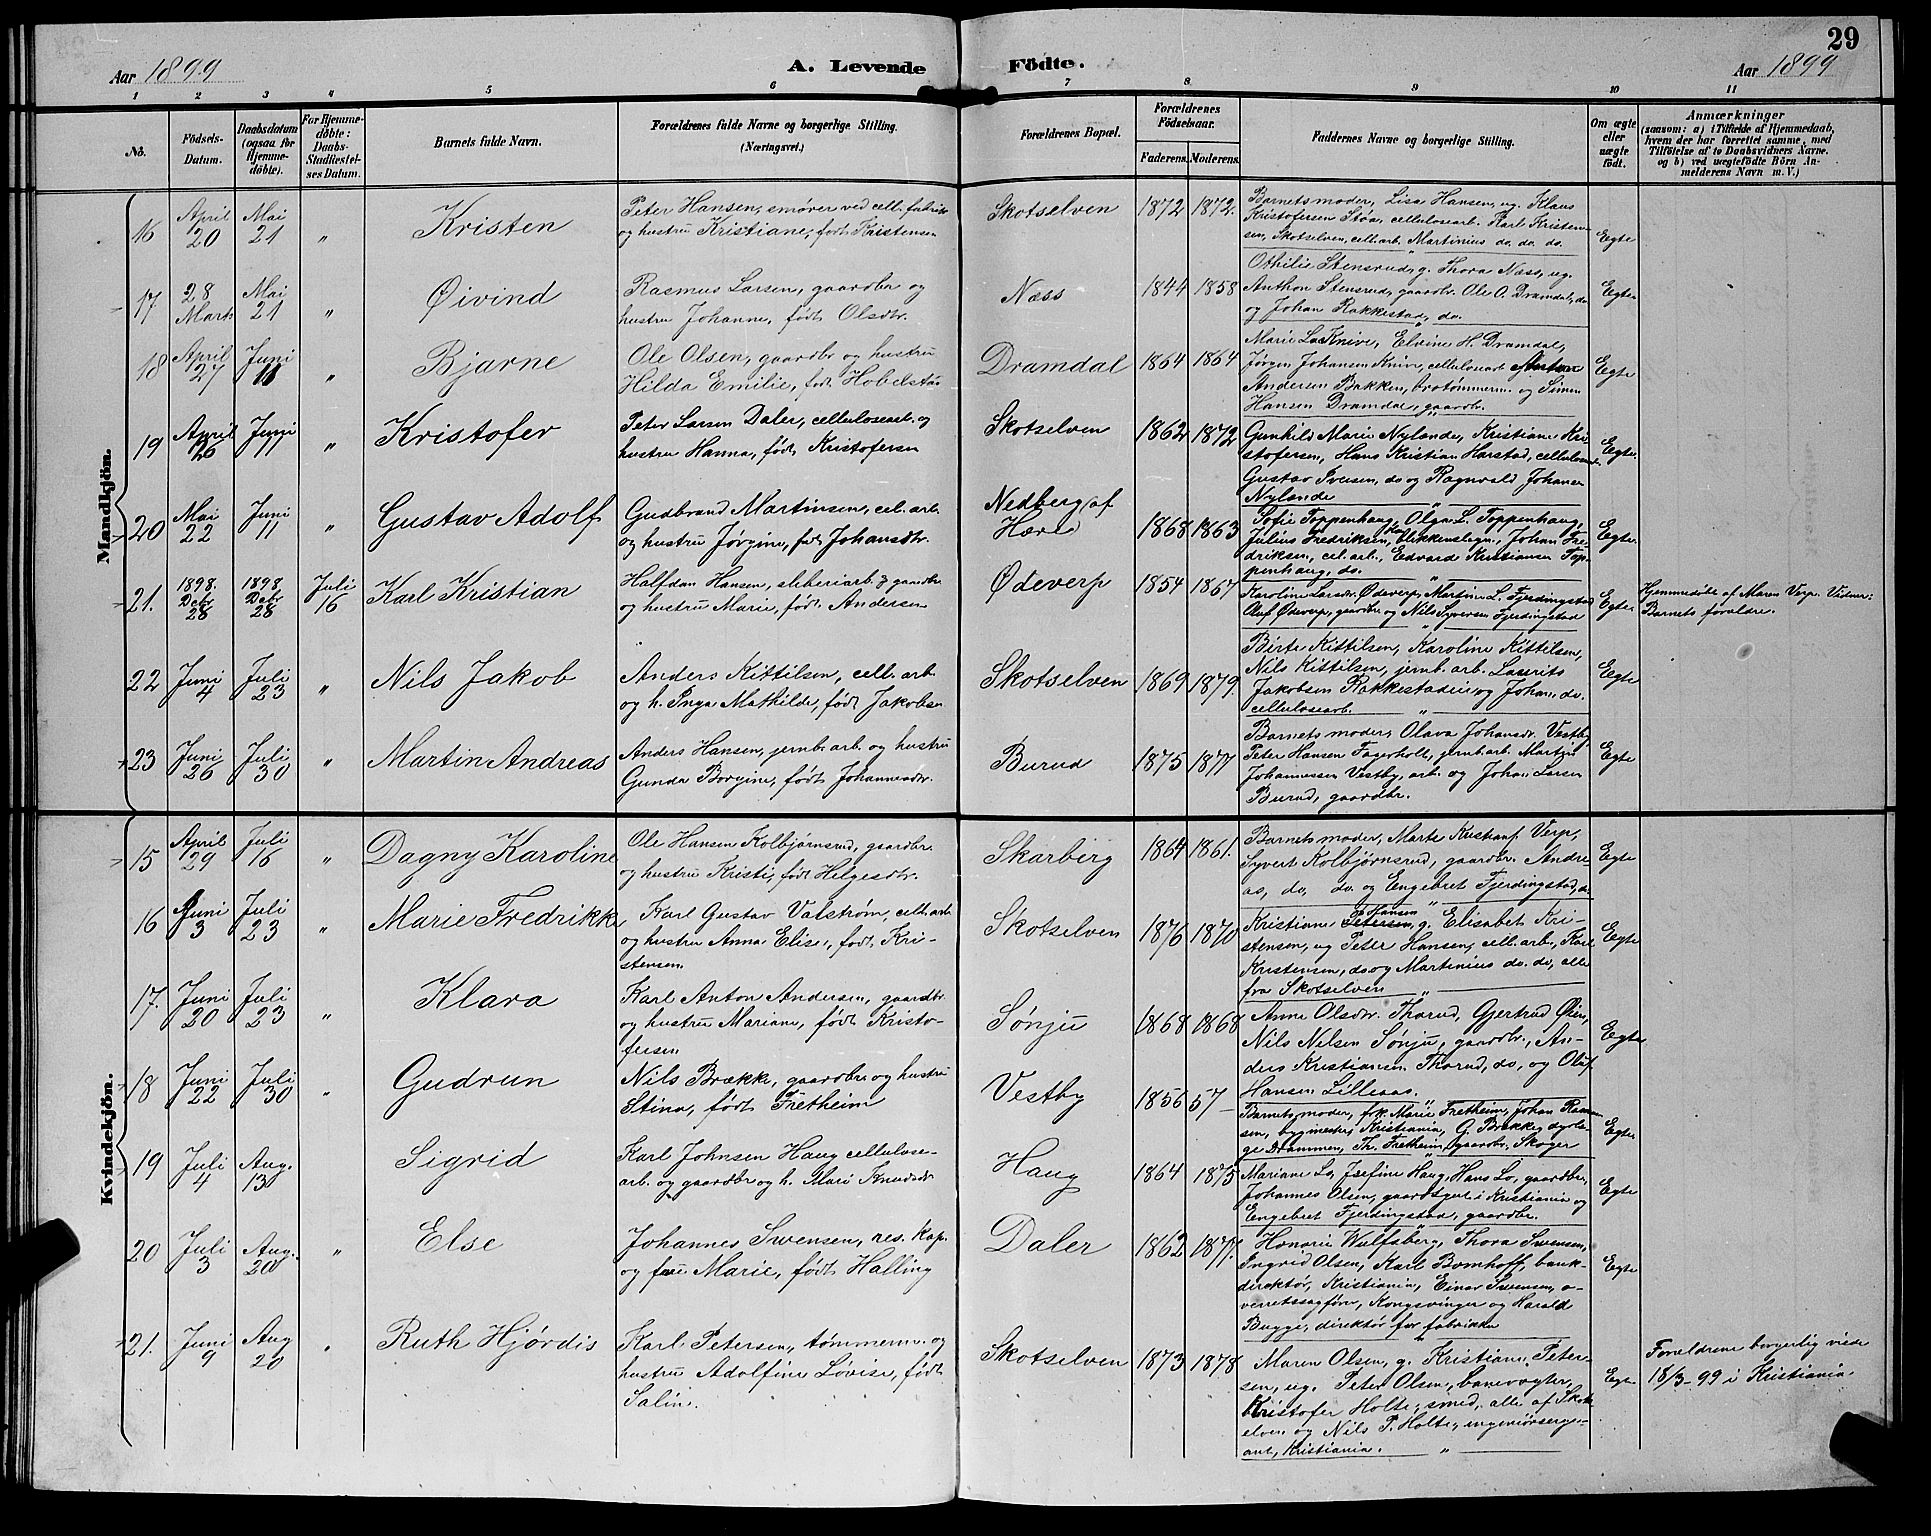 29
Aar 1899
A. Levende Födte.
Aar 1899
1 2 3 4 5 6 7 8 9 10 11
No.
Födsels-
Datum.
Daabsdatum
(ogsaa for
Hjemme-
döbte).
For Hjemme-
döbte:
Daabs-
Stadfæstel-
ses Datum.
Barnets fulde Navn.
Forældrenes fulde Navne og borgerlige Stilling.
(Næringsvei.)
Forældrenes Bopæl.
Forældrenes
Födselsaar.
Faderens. Moderens.
Faddernes Navne og borgerlige Stilling.
Om ægte
eller
uægte
født.
Anmærkninger
(saasom: a) i Tilfælde af Hjemmedaab,
hvem der har forrettet samme, med
Tilföielse af to Daabsvidners Navne.
og b) ved uægtefödte Börn An-
melderens Navn m. V.)
Mandkjön.
16
April
20
Mai
21
"
Kristen
Peter Hansen, smører ved cell. fabrik
og hustru Kristiane, født Kristensen
Skotselven
1872 1872.
Barnets moder, Lisa Hansen, ug. Klaus
Kristofersen Støa, cellulosearb. Karl Kristen-
sen, Skotselven, cell. arb. Martinius do. do. do.
Egte
17
28
Marts
Mai
21
"
Øivind
Rasmus Larsen, gaardbr og
hustru Johanne, født Olsdtr.
Næss
1844 1858
Othilie Stensrud, g. Thora Næss, ug.
Anthon Stensrud, gaardbr. Ole O. Dramdal, do
og Johan Rakkestad, do.
Egte
18
April
27
Juni
11
"
Bjarne
Ole Olsen, gaardbr og hustru
Hilda Emilie, født Hobelstad
Dramdal
1864 1864
Marie L. Knive, Elvine H. Dramdal,
Jørgen Johansen Knive, cellulosearb. Anton
Andersen Bakken, brotømmerm. og Simen
Hansen Dramdal, gaardbr.
Egte
19
April
26
Juni
11
"
Kristofer
Peter Larsen Daler, cellulosearb. og
hustru Hanna, født Kristofersen
Skotselven
1862 1872
Gunhild Marie Nylande, Kristiane Kri-
stofersen, Hans Kristian Harstad, cellulosearb.
Gustav Iversen, do og Ragnvald Johansen
Nylande
Egte.
20
Mai
22
Juni
11
"
Gustav Adolf
Gudbrand Martinsen, cel. arb.
og hustru Jørgine, født Johansdtr.
Nedberg af
Hære
1868 1863
Sofie Toppenhaug, Olga L. Toppenhaug,
Julius Fredriksen, blikkenslagn. Johan Fre-
driksen, cel. arb., Edvard Kristiansen Top-
penhaug, do.
Egte
21.
1898
Debr
28
1898
Debr
28
Juli
16
Karl Kristian
Halfdan Hansen, sliberiarb. og gaardbr
og hustru Marie, født Andersen
Ødeverp
1854 1867
Karoline Larsdtr. Ødeverp, Martine L. Fjerdingstad
Oluf Ødeverp, gaardbr og Nils Syversen Fjerdingstad
Egte
Hjemmedöbt af Maren Verp. Vidner:
Barnets forældre.
22
Juni
4
Juli
23
"
Nils Jakob
Anders Kittilsen, cell. arb.
og h. Inga Mathilde, født Jakobsen
Skotselven
1869 1879.
Birte Kittilsen, Karoline Kittilsen,
Nils Kittilsen, jernb. arb. Laurits
Jakobsen Rakkestadeie og Johan do.
cellulosearb.
Egte
23
Juni
26
Juli
30
"
Martin Andreas
Anders Hansen, jernb. arb. og hustru
Gunda Borgine, født Johannesdtr.
Burud
1875 1877
Barnets moder, Olava Johansdtr. Vestby
Peter Hansen Fagerholt, jernb. arb. Martin
Johannessen Vestby, arb. og Johan Larsen
Burud, gaardbr.
Egte
Kvindekjön.
15
April
29
Juli
16
"
Dagny Karoline
Ole Hansen Kolbjørnsrud, gaardbr.
og hustru Kristi, født Helgesdtr.
Skarberg
1864 1861.
Barnets moder, Marte Kristiansen Verp,
Syvert Kolbjørnsrud, gaardbr. Andre-
as, do, do. og Engebret Fjerdingstad, do
Egte
16
Juni
3
Juli
23
"
Marie Fredrikke
Karl Gustav Valstrøm, cell. arb.
og hustru Anna Elise, født Kri-
stensen
Skotselven
1876 1870
Kristiane Petersen g. Hansen, Elisabet Kri-
stensen, ug Peter Hansen, cell. arb., Karl
Kristensen, do og Martinius do. do, alle
fra Skotselven
Egte
17.
Juni
20
Juli
23
"
Klara
Karl Anton Andersen, gaardbr.
og hustru Mariane, født Kristo-
fersen
Sønju
1868 1868
Anne Olsdtr. Thorud, Gjertrud Øien,
Nils Nilsen Sønju, gaardbr., An-
ders Kristiansen Thorud, do, og Oluf
Hansen Lilleaas.
Egte
18
Juni
22
Juli
30
"
Gudrun
Nils Brække, gaardbr og hustru
Stina, født Fretheim
Vestby
1856 57
Barnets moder, frk. Marie Fretheim, Johan Rasmus-
sen, bygmester, Kristiania, G. Brække dyrlæ-
ge Drammen, Th. Fretheim, gaardbr. Skoger
Egte
19
Juli
4
Aug.
13
Sigrid
Karl Johnsen Haug cellulose-
arb. og gaardbr og h. Mari Knudsdr.
Haug
1864 1875
Mariane Lo, Josefine Haug, Hans Lo, gaardbr,
Johannes Olsen, gaardsgut i Kristiania og
Engebret Fjerdingstad, gaardbr.
Egte
20
Juli
3
Aug.
20
"
Else
Johannes Swensen, res. kap.
og frue Marie, født Halling
Daler
1862 1877.
Honorie Wulfsberg, Thora Swensen,
Ingrid Olsen, Karl Bomhoff, bank-
direktør, Kristiania, Einar Swensen, o-
verretssagfører, Kongsvinger og Harald
Bugge, direktør for fabrikke
Egte
21.
Juni
9
Aug
20
"
Ruth Hjørdis
Karl Petersen, tømmerm. og
hustru Adolfine Lovise, født
Salin.
Skotselven
1873 1878
Maren Olsen, g. Kristiane Peter-
sen, ug. Peter Olsen, banevogter,
Kristofer Holte, smed, alle af Skots-
elven og Nils P. Holte, ingeniörserge-
ant, Kristiania.
Egte
Forældrene borgerlig viede
18/3-99 i Kristiania.